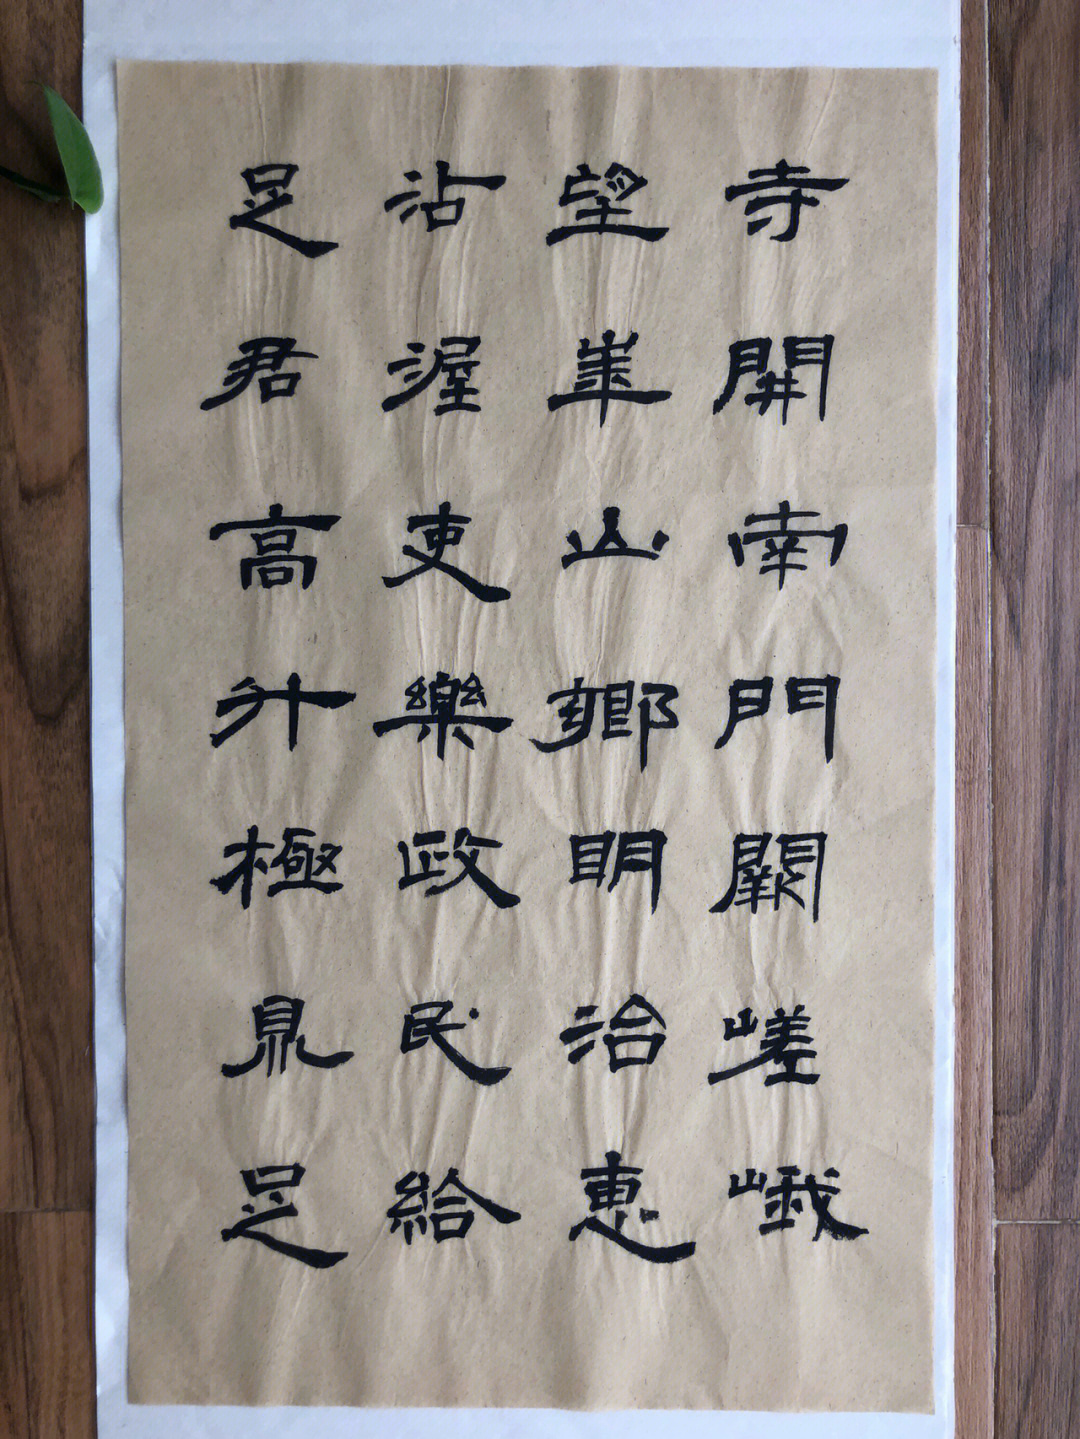 寺開南門闕嵯峨
望崋山鄉明治惠
沾渥吏樂政民給
足君高升極鼎足